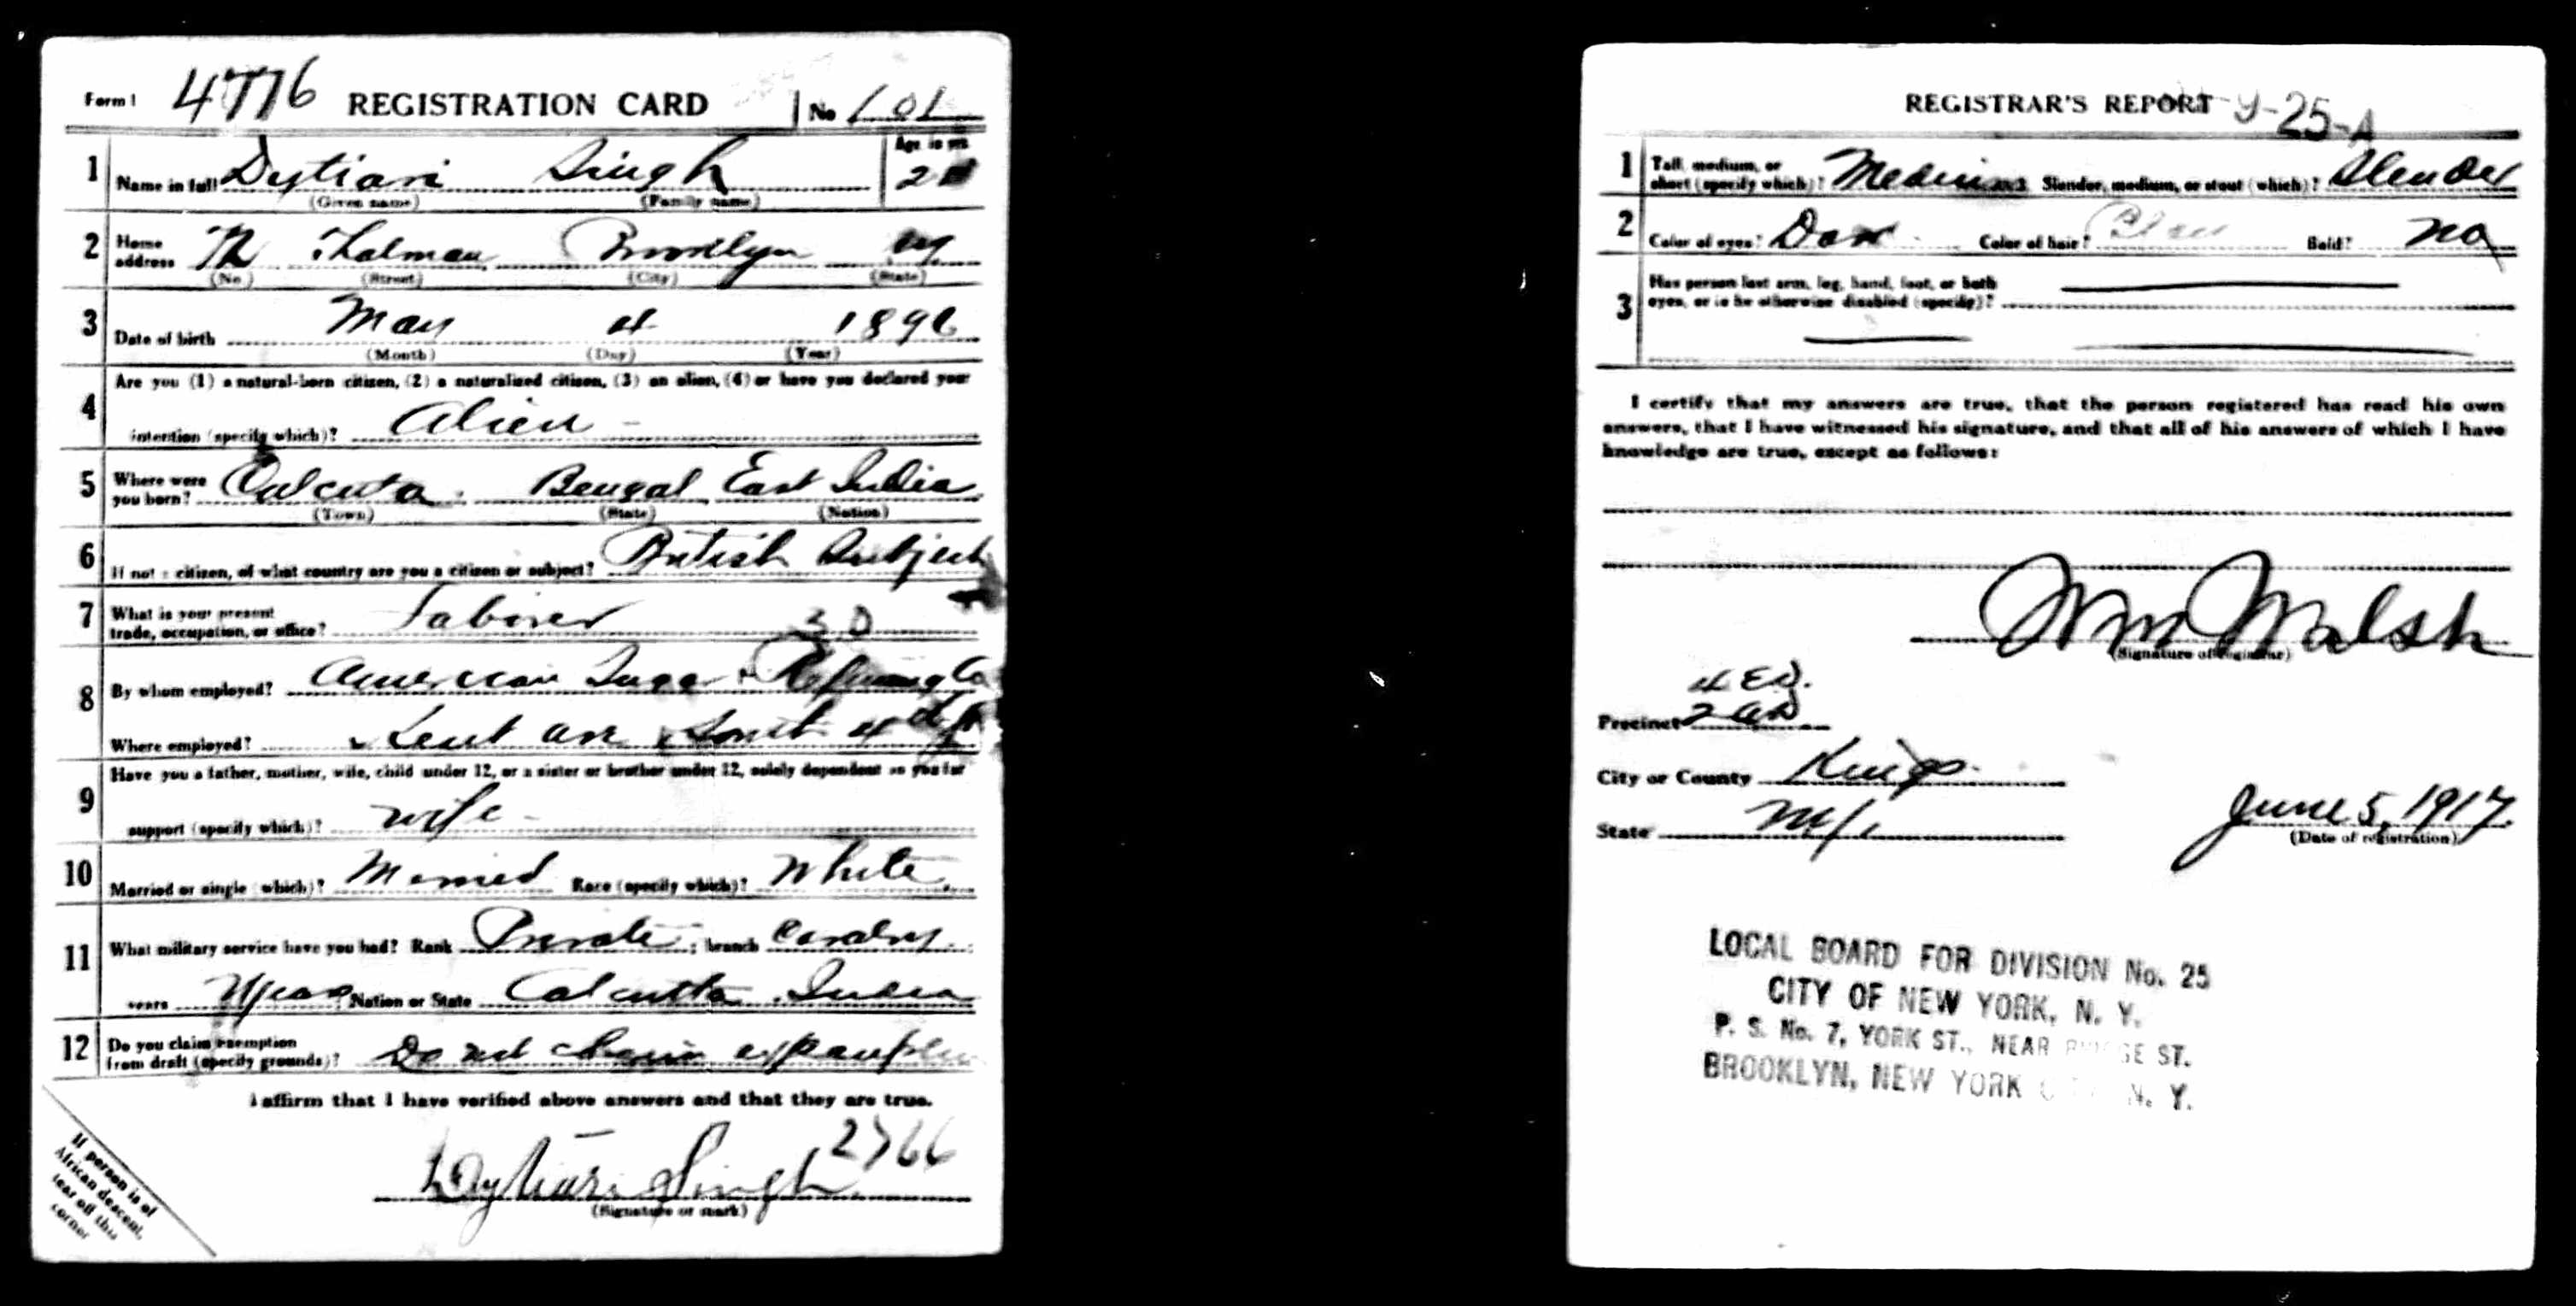 Form 1 4776 REGISTRATION CARD No 101
1 Name in full Dytiari Singh Age in yrs
(Given name) (Family name)
2 Home address Thalman Brooklyn NY
(No) (Street) (City) (State)
3 Date of birth May 4 1896
(Month) (Day) (Year)
Are you (1) a natural-born citizen, (2) a naturalized citizen, (3) an alien, (4) or have you declared your
4 intention (specify which)? Alien -
5 Where were you born? Calcuta. Bengal East India
(Town) (State) (Nation)
6 If not a citizen, of what country are you a citizen or subject? British Subject
7 What is your present trade, occupation, or office? Laborer 30
8 By whom employed? American Sugar Refining Co
Where employed? Kent av South 4th St
Have you a father, mother, wife, child under 12, or a sister or brother under 12, solely dependent on you for
9 support (specify which)? wife -
10 Married or single (which)? Married Race (specify which)? White
11 What military service have you had? Rank Private; branch Cavalry
years Nation or State Calcutta India
12 Do you claim exemption from draft (specify grounds)? Do not claim
I affirm that I have verified above answers and that they are true.
2766
Dytiari Singh
(Signature or mark)
If person is of
African descent,
tear off this
corner
REGISTRAR'S REPORT 9-25-A
1 Tall, medium, or short (specify which)? Medium Slender, medium, or stout (which)? Slender
2 Color of eyes? Dark Color of hair? Black Bald? No
3 Has person lost arm, leg, hand, foot, or both
eyes, or is he otherwise disabled (specify)?
I certify that my answers are true, that the person registered has read his own
answers, that I have witnessed his signature, and that all of his answers of which I have
knowledge are true, except as follows:
Wm Walsh
(Signature of registrar)
4 ED.
Precinct 2 AD
City or County Kings
State N.Y. June 5, 1917
(Date of registration)
LOCAL BOARD FOR DIVISION No. 25
CITY OF NEW YORK, N. Y.
P. S. No. 7, YORK ST., NEAR BRIDGE ST.
BROOKLYN, NEW YORK CITY N. Y.